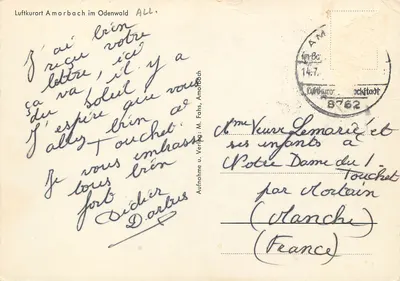 Luftkurort Amorbach im Odenwald ALL.
J'ai bien
reçu votre
lettre, ici
ça va, il y a
du soleil
J'espère que vous
allez bien à
Touchet.
Je vous embrasse
tous bien
fort
Didier
Aufnahme u. Verlag: M. Fahs, Amorbach
AM
14.7.
8762
Mme Veuve Lemarié et
ses enfants à
Notre Dame du
Touchet
par Mortain
(Manche)
(France)